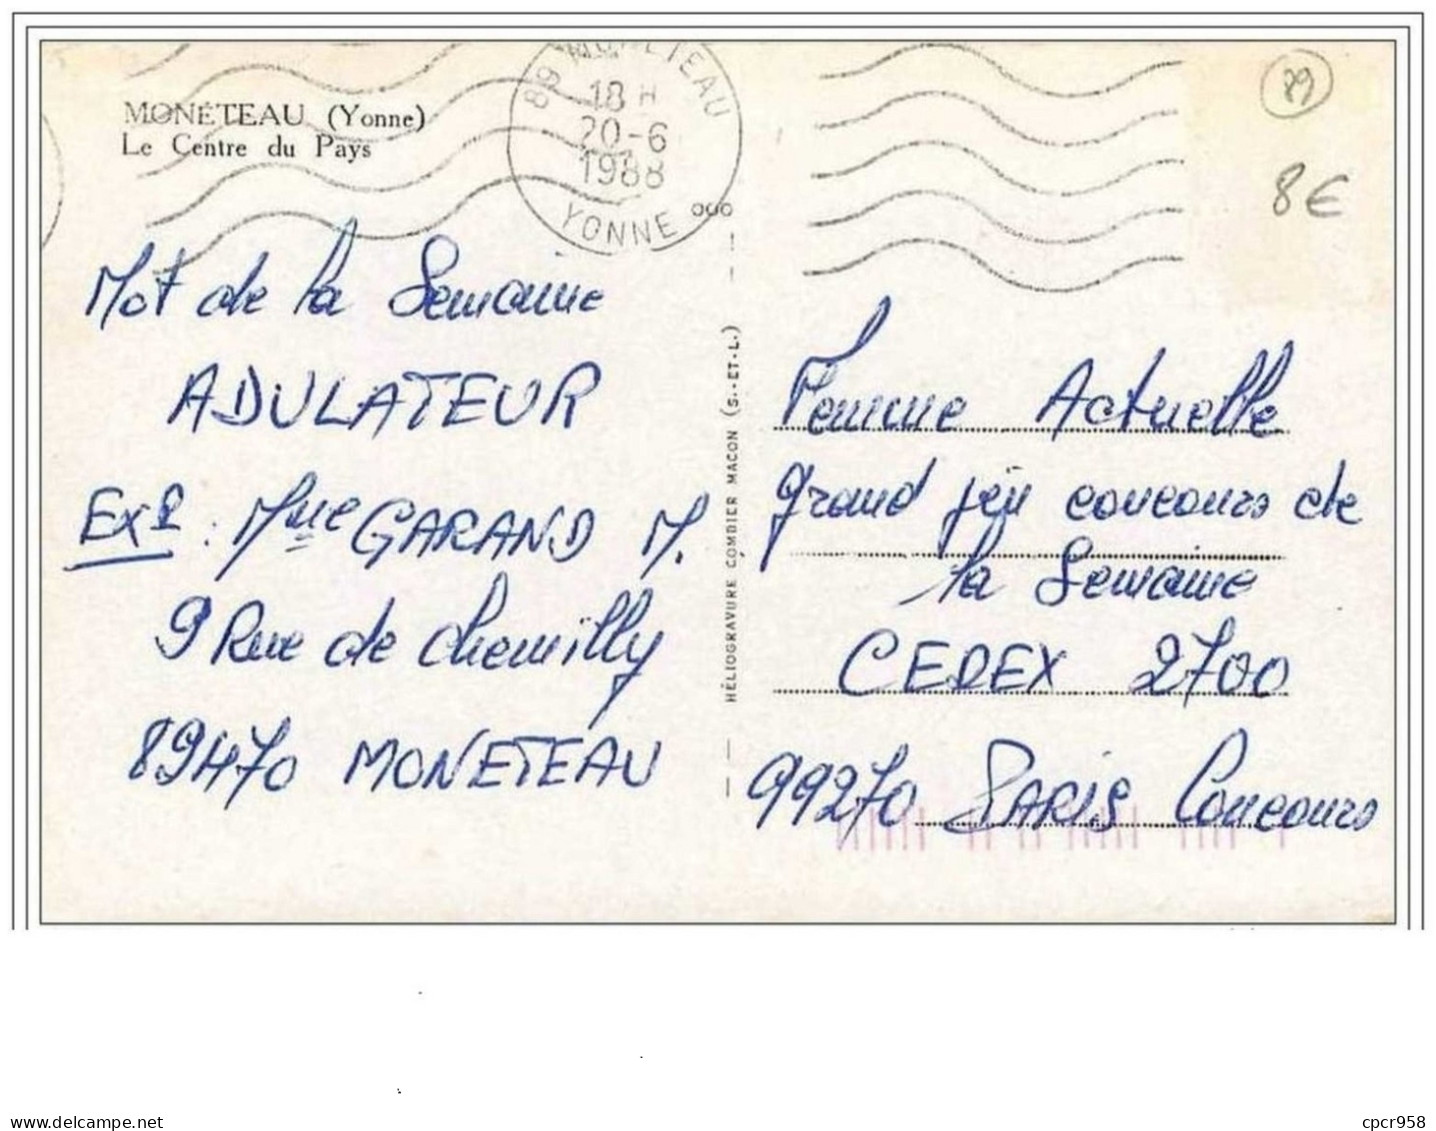 MONÉTEAU (Yonne)
Le Centre du Pays
89 MONETEAU
18 H
20-6
1988
YONNE
89
8€
Mot de la Semaine
ADULATEUR
Exp : Mme GARAND M.
9 Rue de Chemilly
89470 MONETEAU
HÉLIOGRAVURE COMBIER MACON (S.-ET-L.)
Femme Actuelle
grand jeu concours de
la Semaine
CEDEX 2700
99270 PARIS Concours
delcampe.net
cpcr958